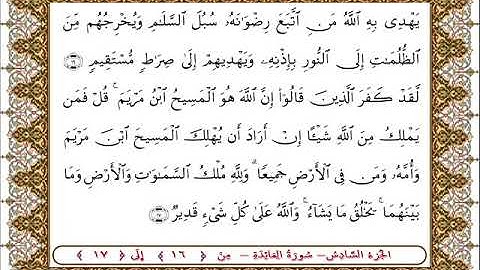 يَهْدِى بِهِ ٱللَّهُ مَنِ ٱتَّبَعَ رِضْوَٰنَهُۥ سُبُلَ ٱلسَّلَٰمِ وَيُخْرِجُهُم مِّنَ
ٱلظُّلُمَٰتِ إِلَى ٱلنُّورِ بِإِذْنِهِۦ وَيَهْدِيهِمْ إِلَىٰ صِرَٰطٍ مُّسْتَقِيمٍ ١٦
لَّقَدْ كَفَرَ ٱلَّذِينَ قَالُوٓا۟ إِنَّ ٱللَّهَ هُوَ ٱلْمَسِيحُ ٱبْنُ مَرْيَمَ ۚ قُلْ فَمَن
يَمْلِكُ مِنَ ٱللَّهِ شَيْـًٔا إِنْ أَرَادَ أَن يُهْلِكَ ٱلْمَسِيحَ ٱبْنَ مَرْيَمَ
وَأُمَّهُۥ وَمَن فِى ٱلْأَرْضِ جَمِيعًا ۗ وَلِلَّهِ مُلْكُ ٱلسَّمَٰوَٰتِ وَٱلْأَرْضِ وَمَا
بَيْنَهُمَا ۚ يَخْلُقُ مَا يَشَآءُ ۚ وَٱللَّهُ عَلَىٰ كُلِّ شَىْءٍ قَدِيرٌ ١٧
الجزء السّادس - سورة المائدة - من ﴿ ١٦ ﴾ إلى ﴿ ١٧ ﴾